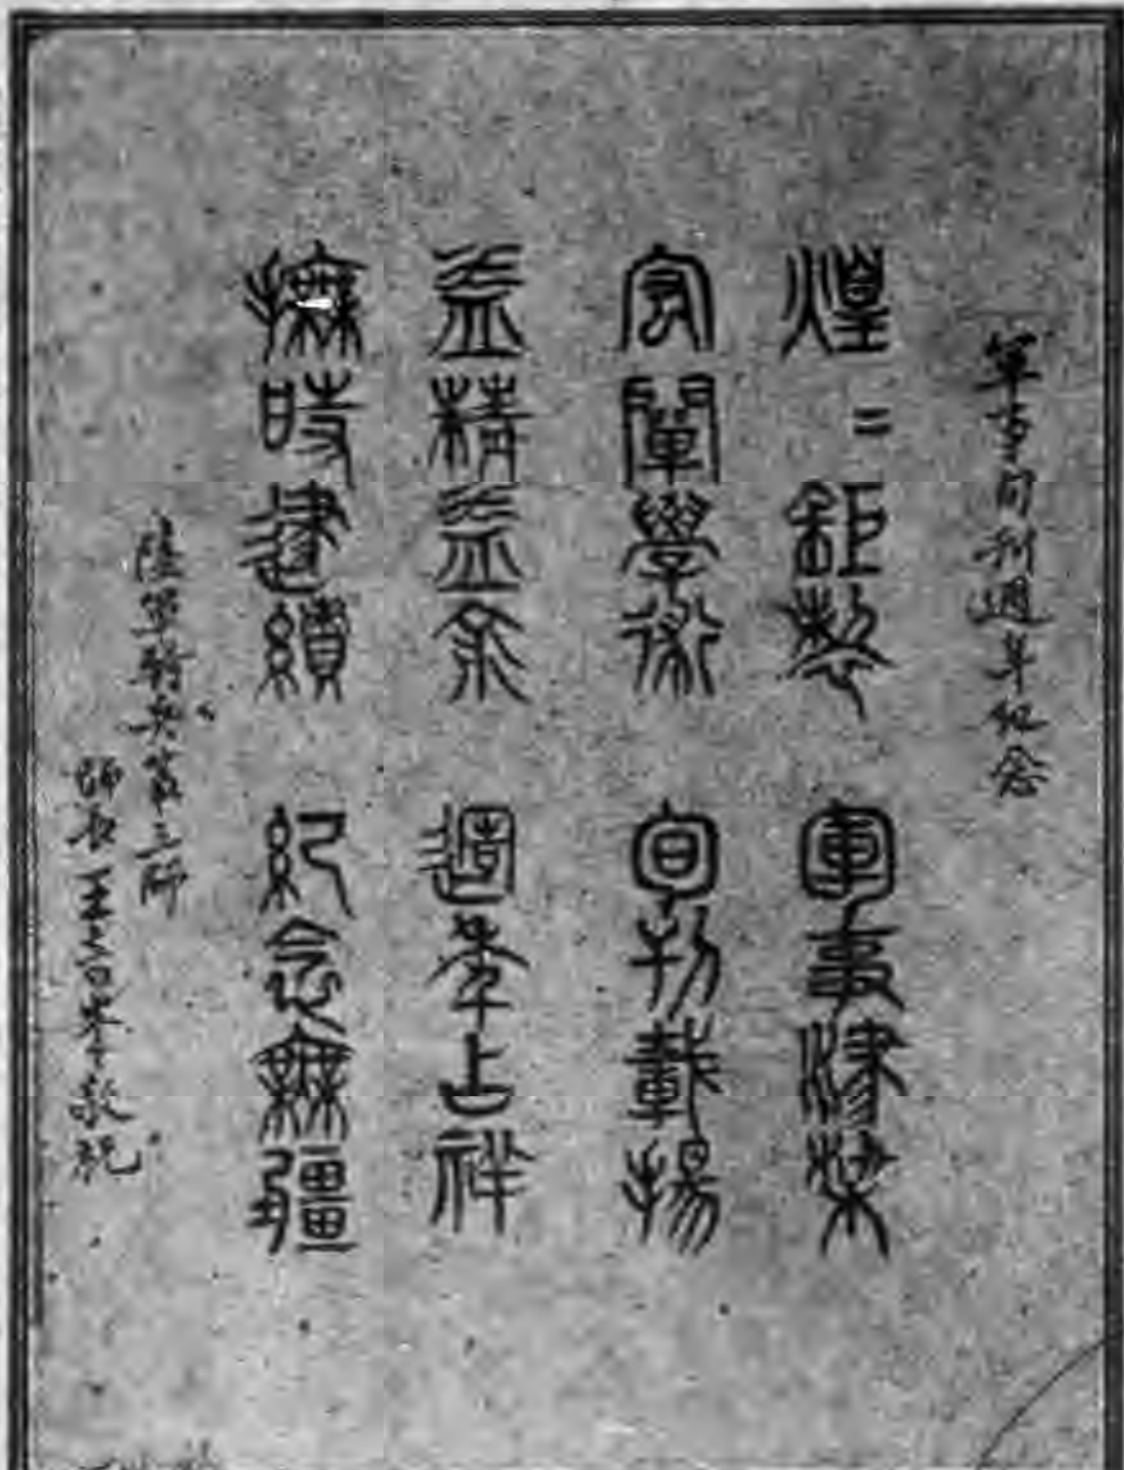 軍事旬刊週年紀念
煌二鉅製 軍事津梁
宏闡學術 旬刊載揚
益精益求 週年占祥
撫時建績 紀念無疆
陸軍騎兵第三師
師長王 敬祝